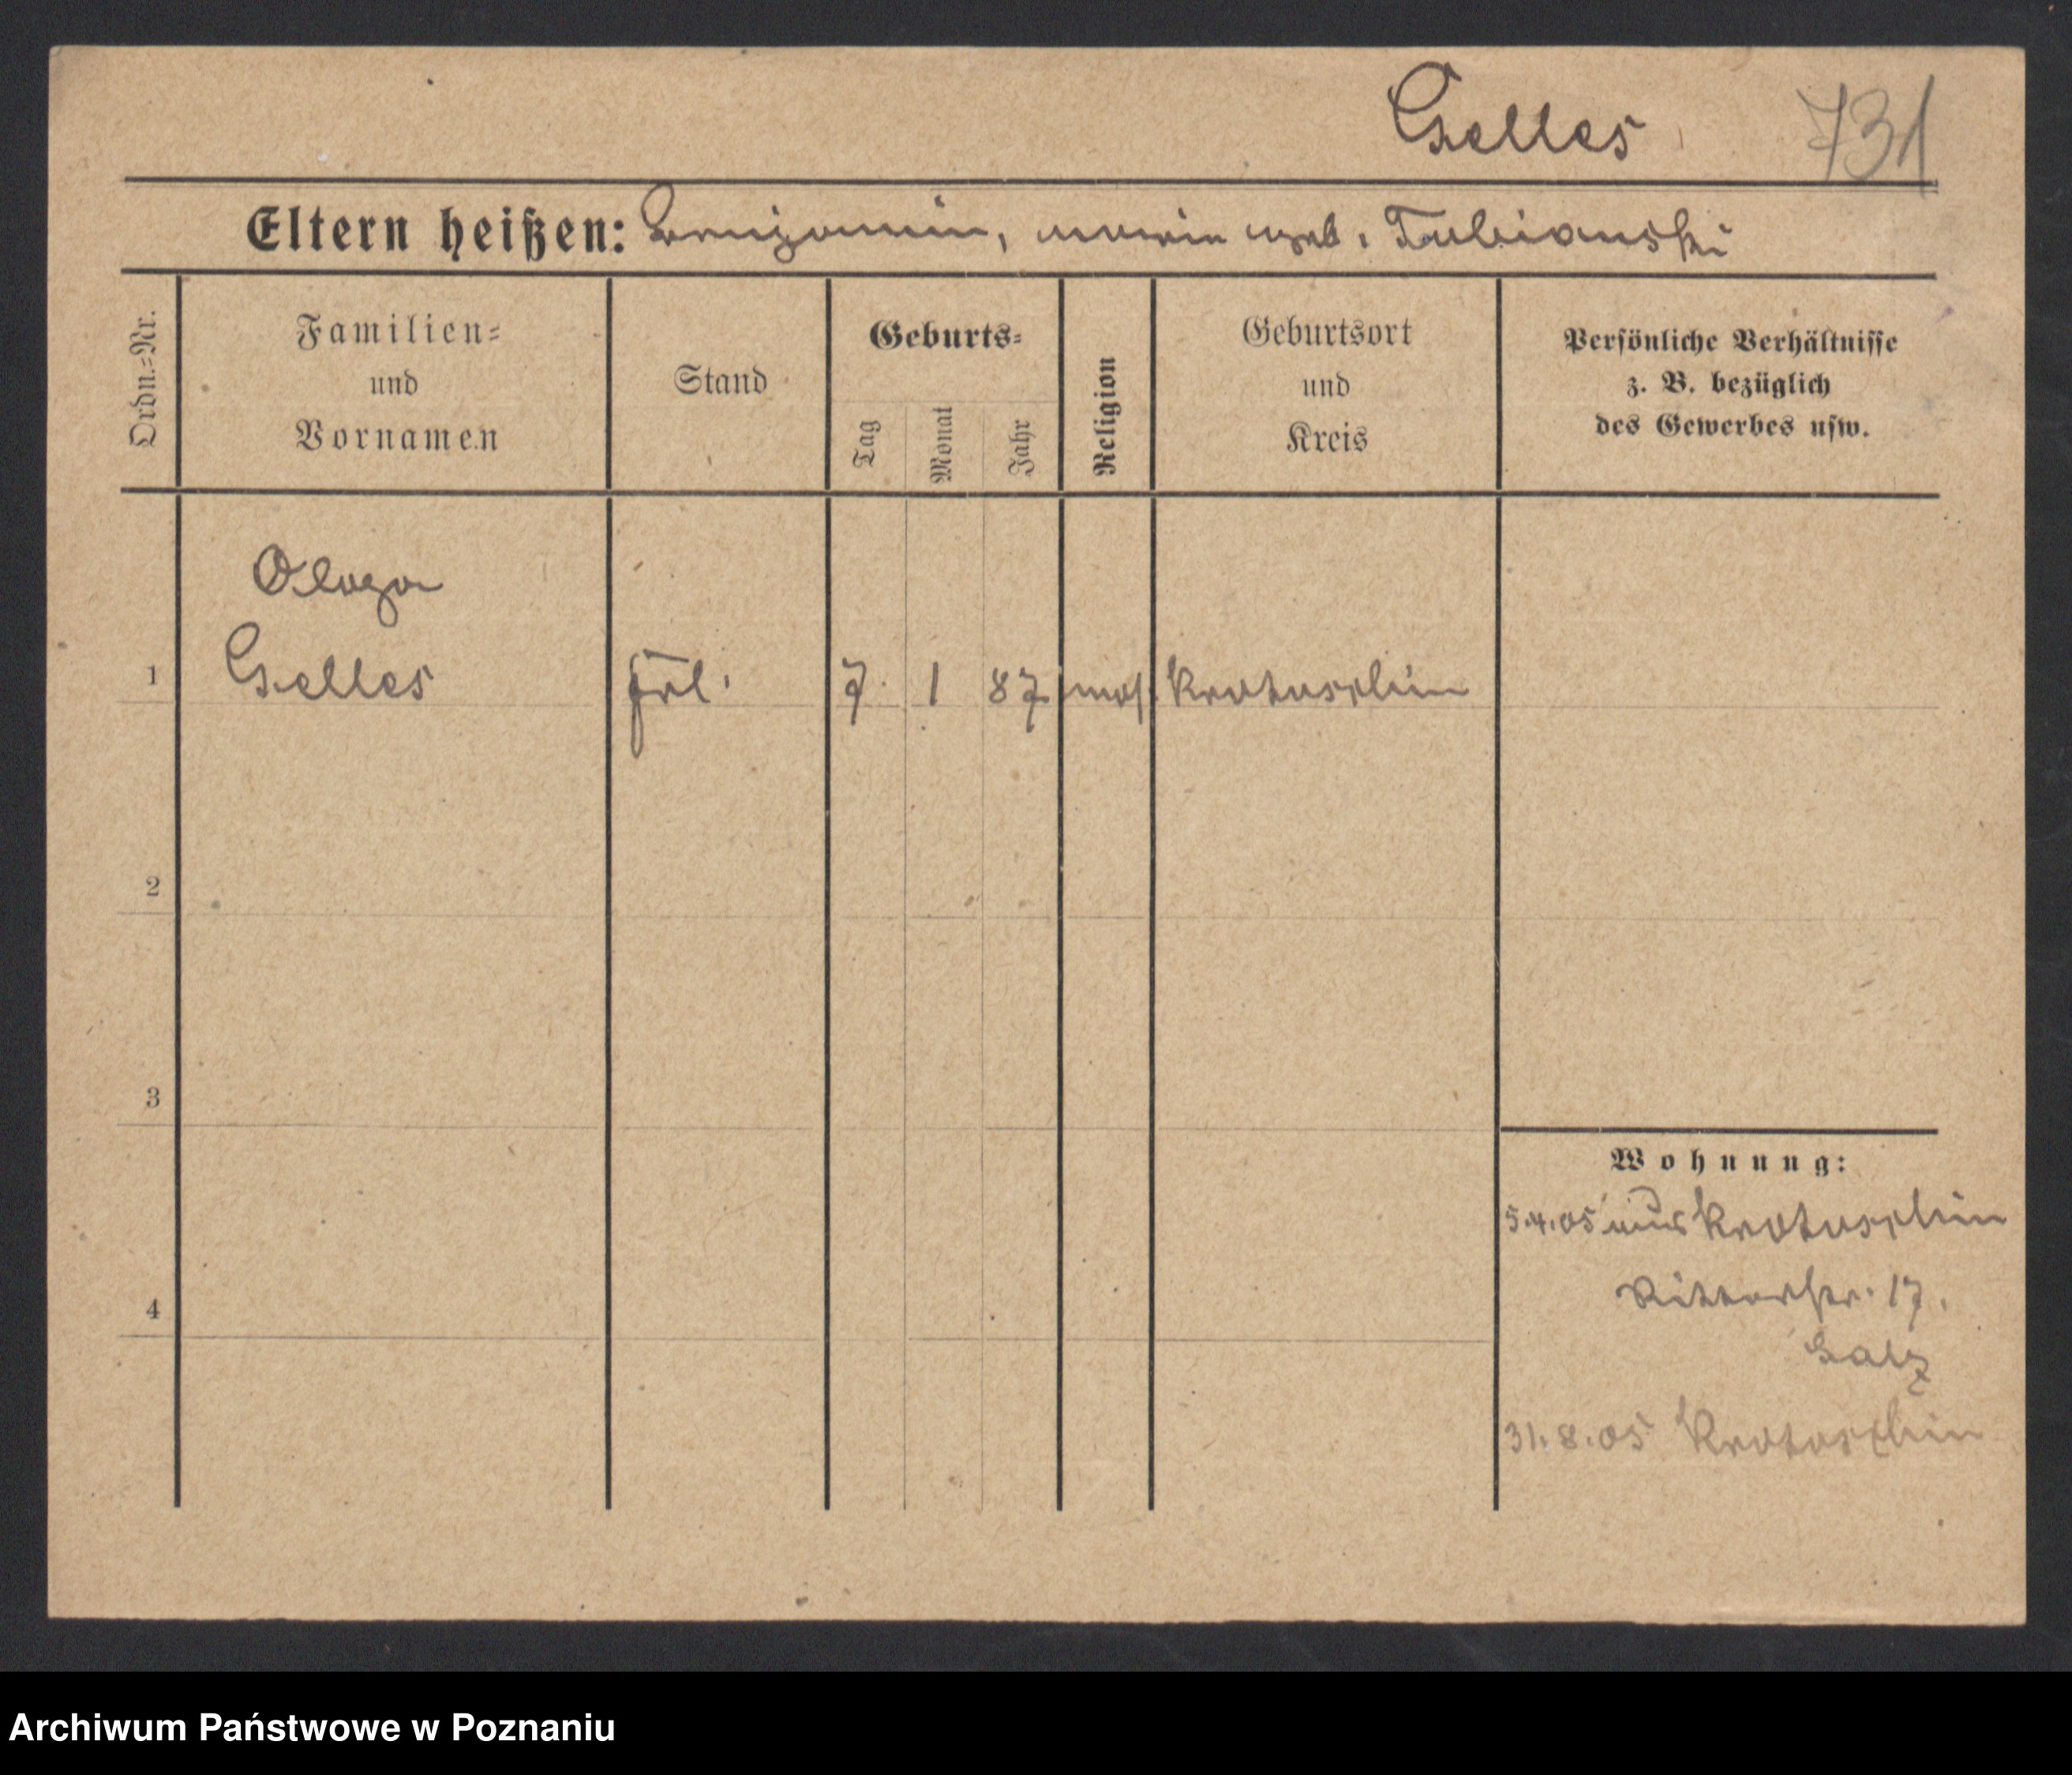 Gselles 731
Eltern heißen: Benjamin, Marie geb. Tabianski
Ordn.-Nr.
Familien-
und
Vornamen
Stand
Geburts-
Tag
Monat
Jahr
Religion
Geburtsort
und
Kreis
Persönliche Verhältnisse
z. B. bezüglich
des Gewerbes usw.
1
Gselles Frl. 7. 1 87 mos. Krotoschin
2
3
4
Wohnung:
5.4.05 aus Krotoschin
Ritterstr. 17.
31.8.05 Krotoschin
Archiwum Państwowe w Poznaniu